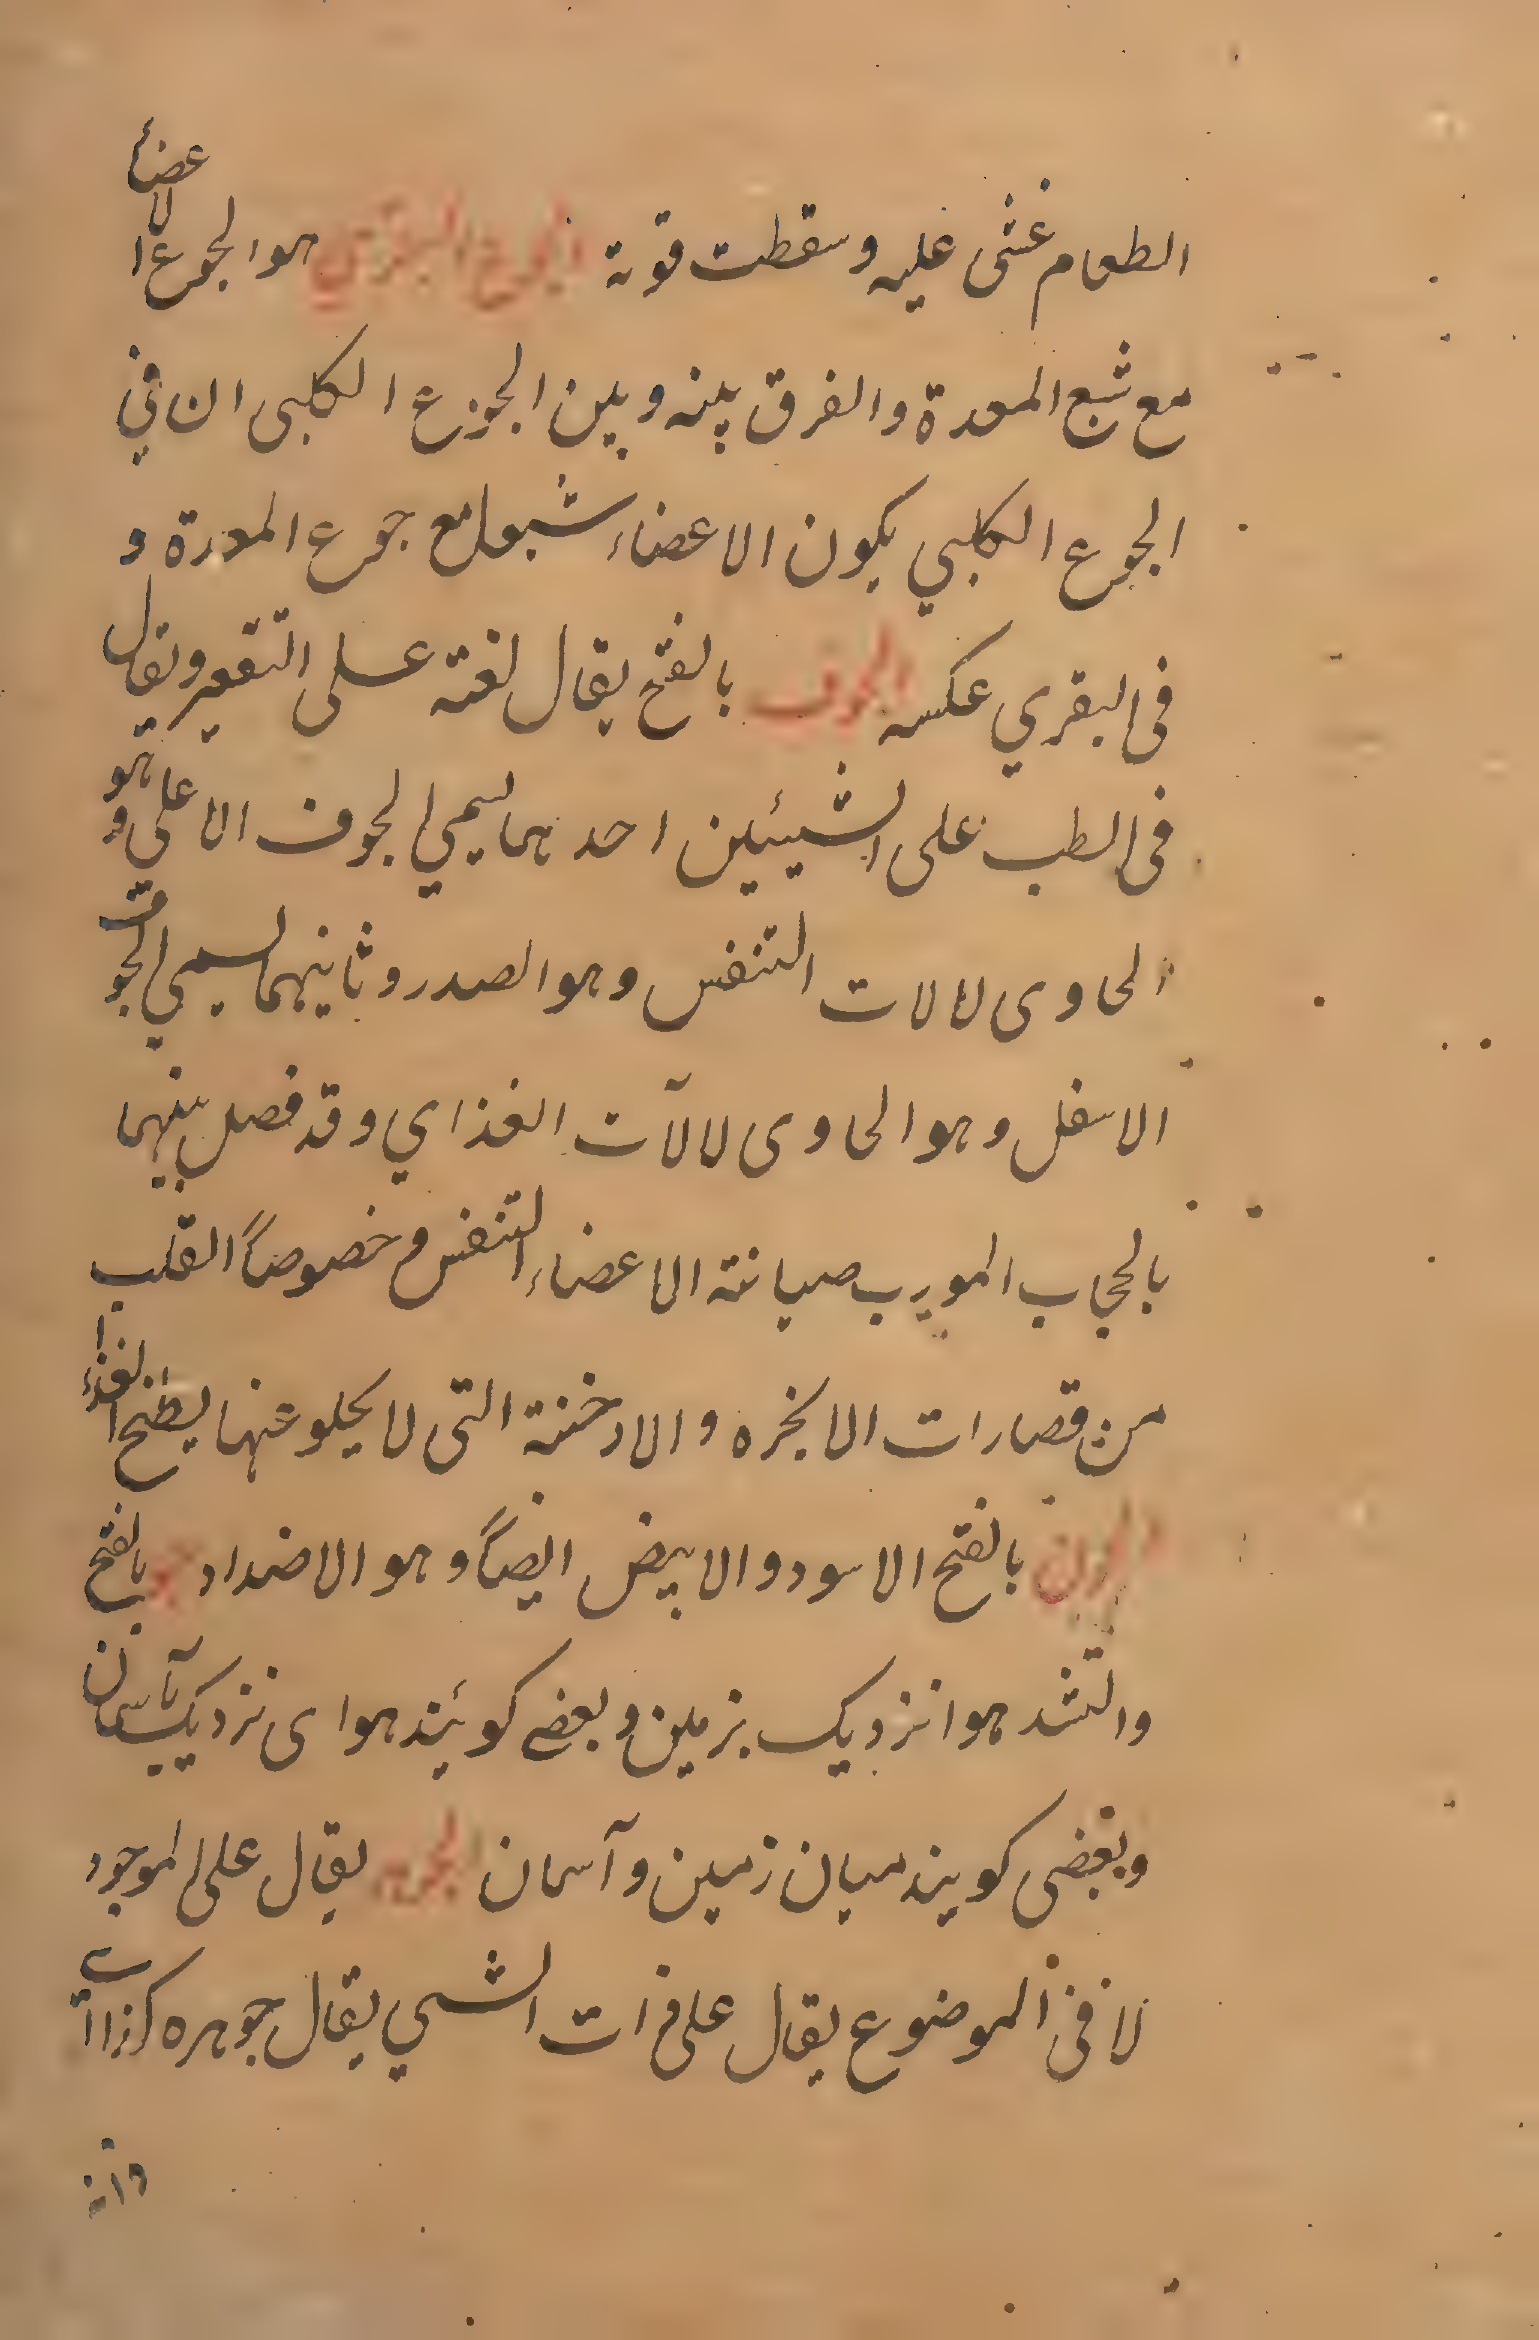 الطعام غشی عليه وسقطت قوته الجوع البقري هو الجوع الاعضاء
مع شبع المعدة والفرق بينه وبين الجوع الكلبى ان في
الجوع الكلبي يكون الاعضاء مع جوع المعدة و
فى البقري عكسه الجوف بالفتح يقال لغته على التقعير ويقال
فى الطب على الشيئين احدهما يسمي الجوف الاعلى وهو
الحاوى لالات التنفس وهو الصدر وثانيهما يسمي الجوف
الاسفل وهو الحاوى لالآت الغذاي وقد فصل بينهما
بالحجاب المورب صيانته الاعضاء التنفس وخصوصاً القلب
من قصارات الابخره والادخنة التى لا يخلو عنها يطبخ الغذاء
الجون بالفتح الاسود والابيض ايضاً وهو الاضداد جو بالفتح
والتشد هوا نزديک بزمين وبعضے کوئيند هواى نزديک بآسمان
وبعضى کويند ميان زمين وآسمان الجوهر يقال على الموجود
لا فى الموضوع يقال على ذات الشي يقال جوهره كذا اے